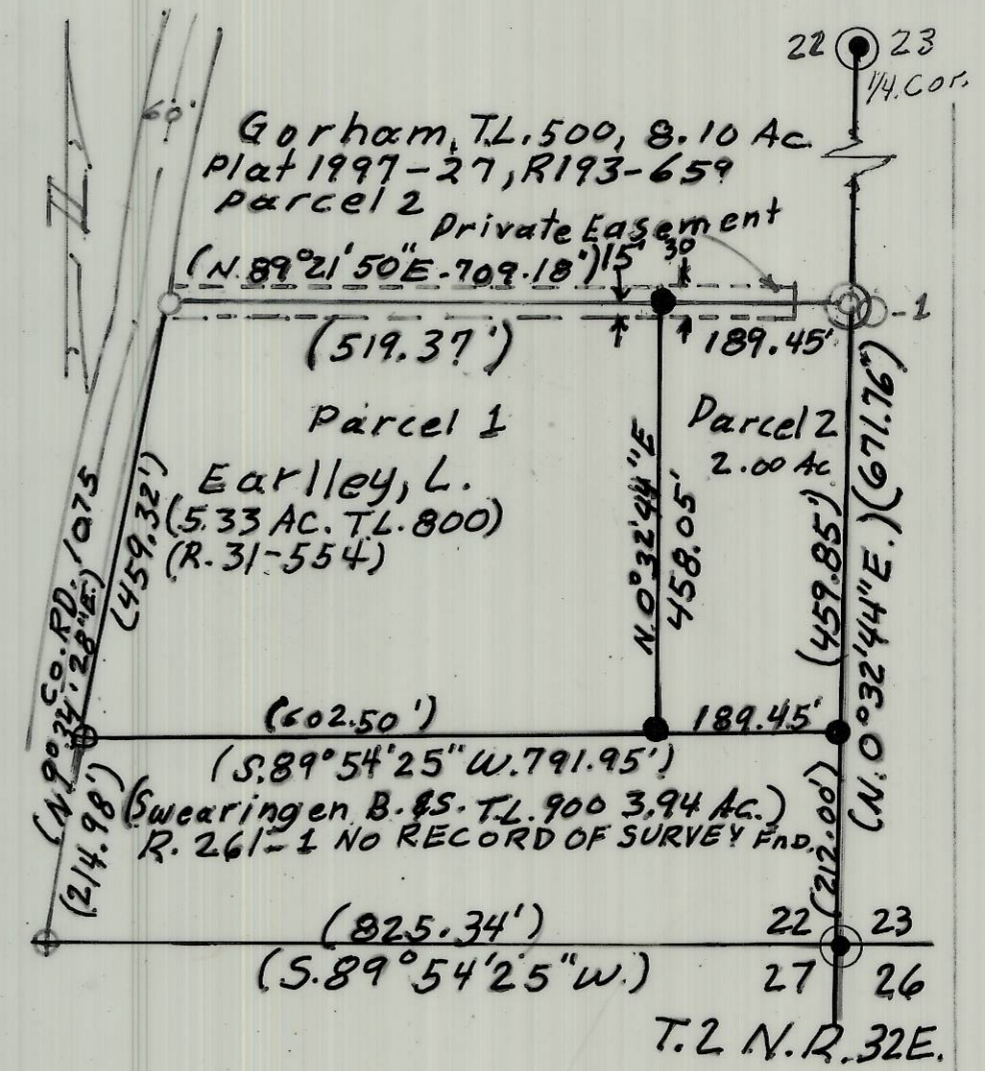 22 23
1/4. Cor.
60'
Gorham, T.L. 500, 8.10 Ac.
Plat 1997-27, R193-659
Parcel 2
Private Easement
(N. 89°21'50"E. 709.18')
15'
30'
-1
(519.37')
189.45'
Parcel 1
Earlley, L.
(5.33 AC. T.L. 800)
(R. 31-554)
Parcel 2
2.00 Ac
N. 0°32'44"E
458.05'
(459.85')
(N. 0°32'44"E.)(671.76')
(459.32')
CO. RD. 1075
(N. 9°34'28"E.)
(602.50')
189.45'
(S. 89°54'25" W. 791.95')
(Swearingen B. &S. T.L. 900 3.94 Ac.)
R. 261-1 NO RECORD OF SURVEY FnD.
(214.98')
(212.00')
(825.34')
(S. 89°54'25"W.)
22 23
27 26
T. 2 N. R. 32E.